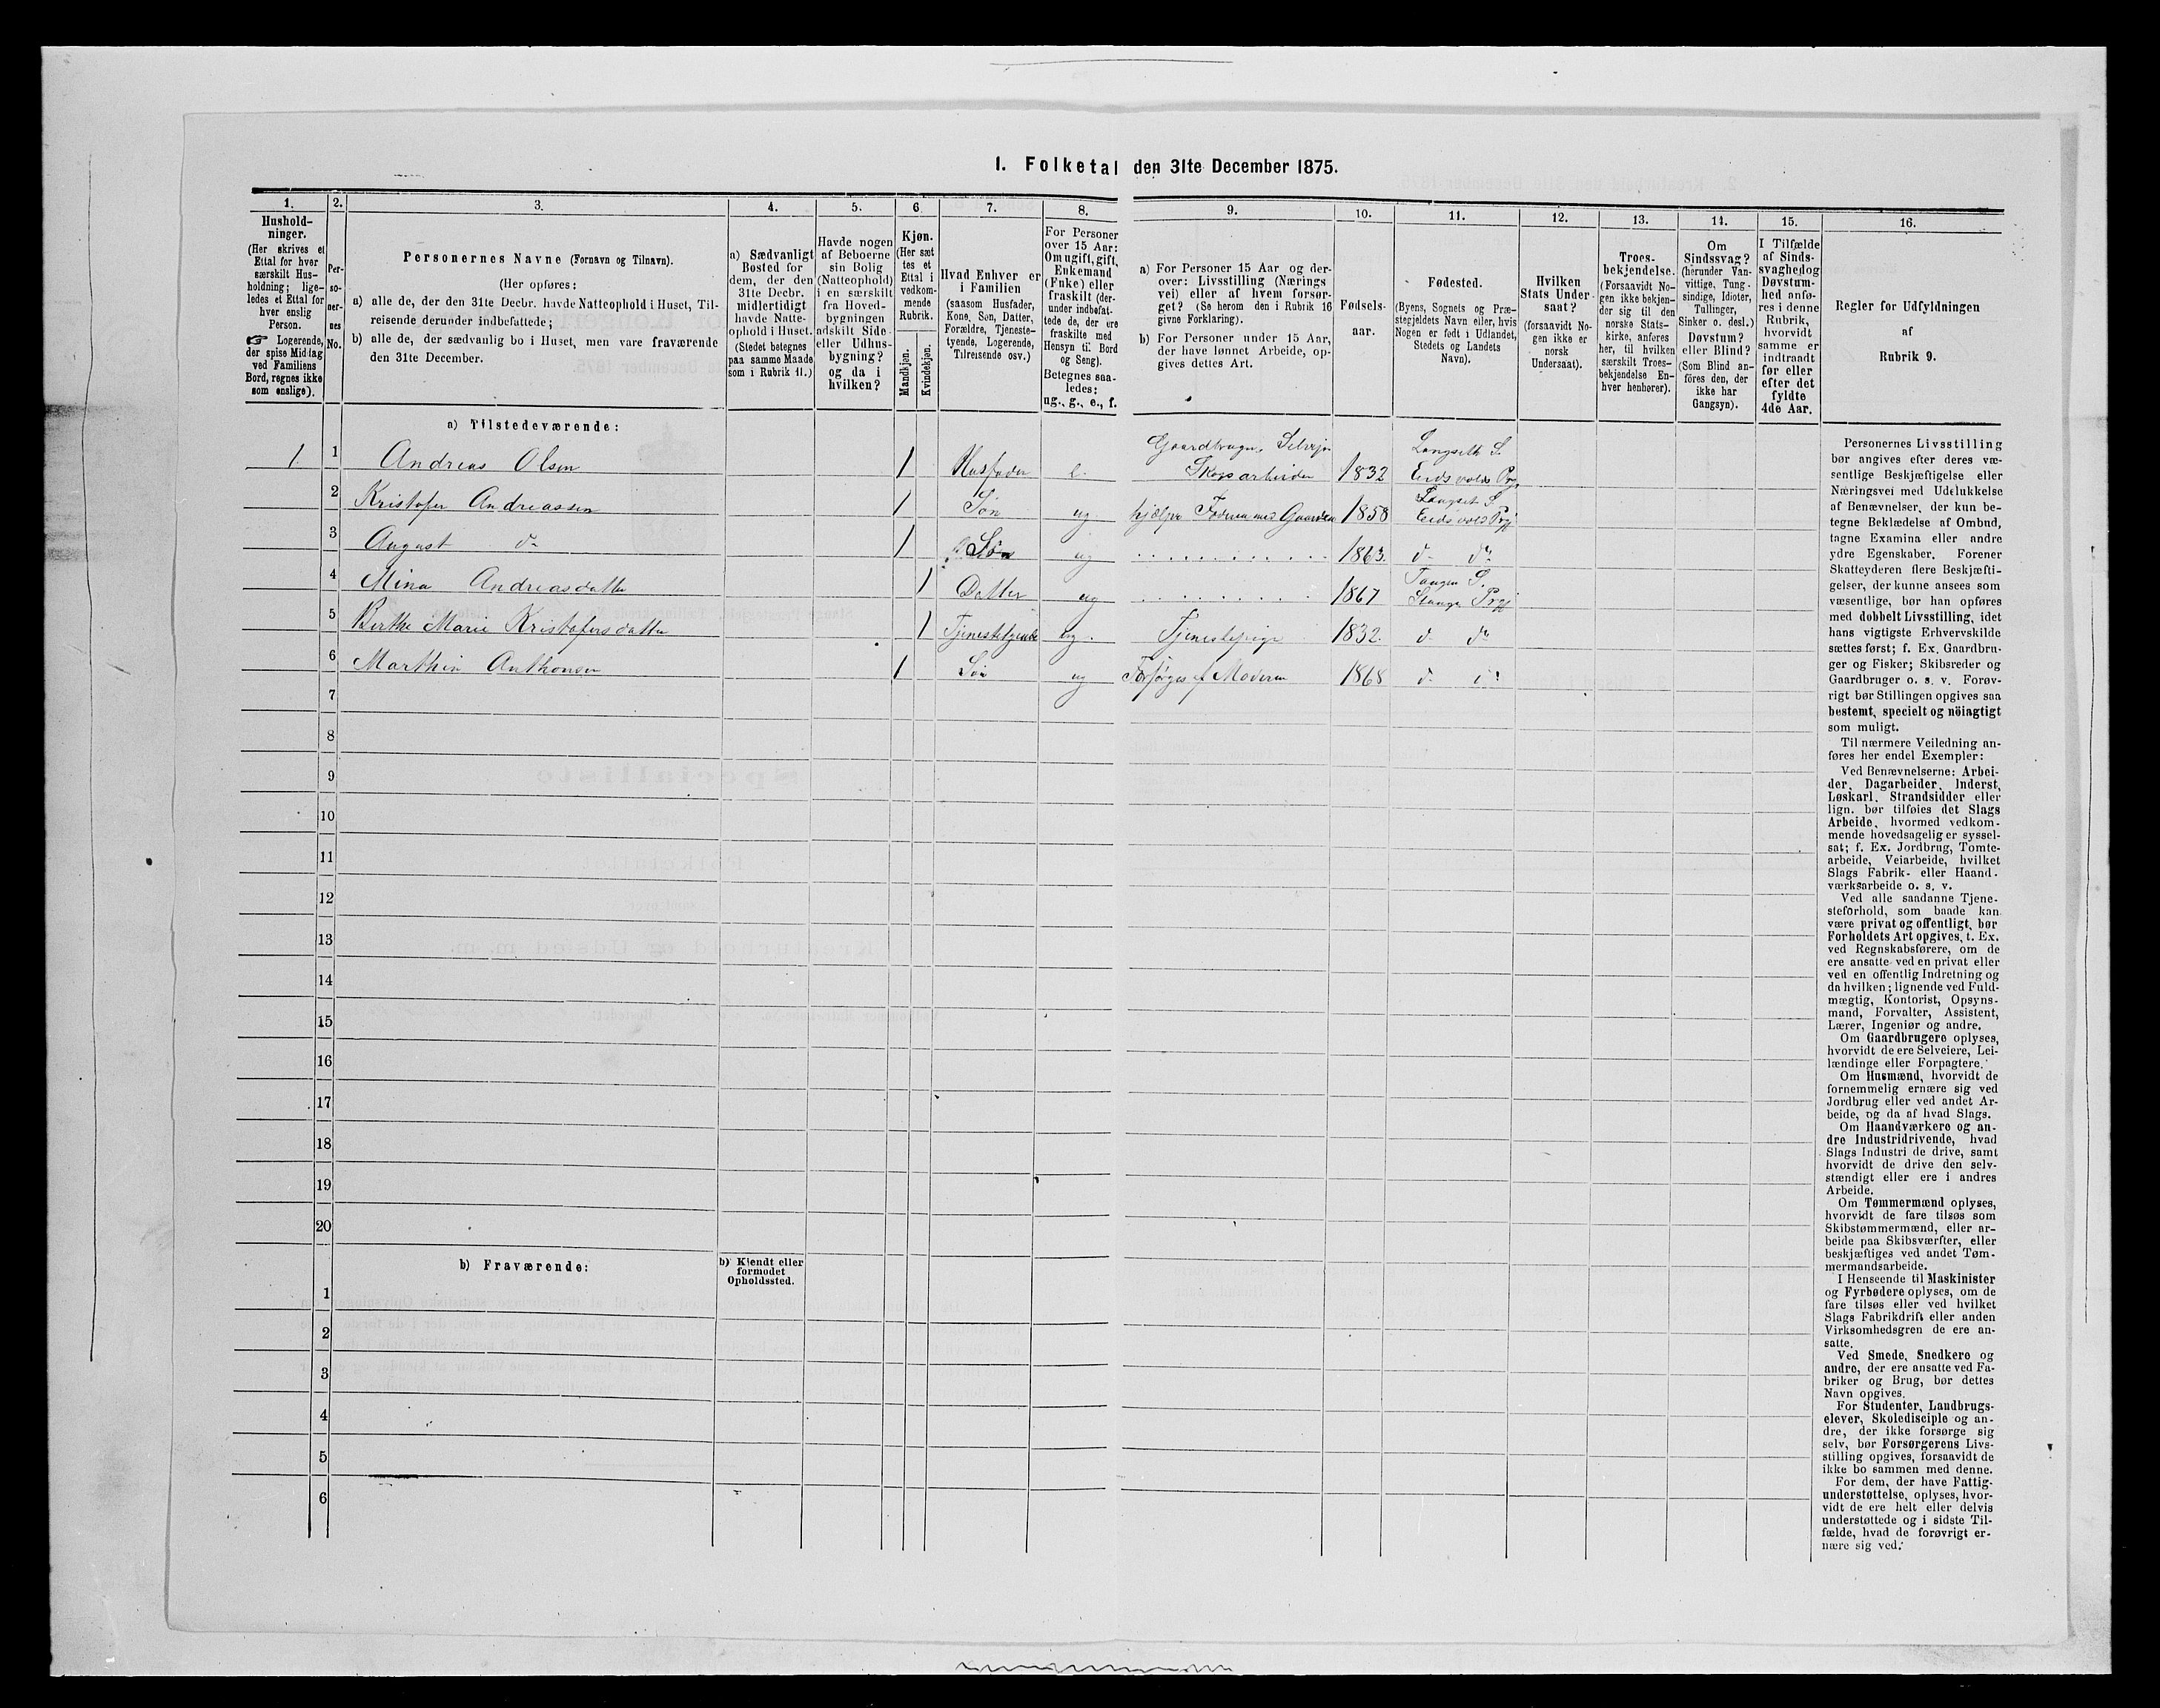 I. Folketal den 31te December 1875.
1.
Hushold-
ninger.
(Her skrives et
Ettal for hver
særskilt Hus-
holdning; lige-
ledes et Ettal for
hver enslig
Person.
☞ Logerende,
der spise Middag
ved Familiens
Bord, regnes ikke
som enslige).
2.
Per-
so-
ner-
nes
No.
3.
Personernes Navne (Fornavn og Tilnavn).
(Her opføres:
a) alle de, der den 31te Decbr. havde Natteophold i Huset, Til-
reisende derunder indbefattede;
b) alle de, der sædvanlig bo i Huset, men vare fraværende
den 31te December.
4.
a) Sædvanligt
Bosted for
dem, der den
31te Decbr.
midlertidigt
havde Natte-
ophold i Huset.
(Stedet betegnes
paa samme Maade
som i Rubrik 11.)
5.
Havde nogen
af Beboerne
sin Bolig
(Natteophold)
i en særskilt
fra Hoved-
bygningen
adskilt Side-
eller Udhus-
bygning?
og da i
hvilken?
6.
Kjøn.
(Her sæt
tes et
Ettal i
vedkom-
mende
Rubrik.
Mandkjøn.
Kvindekjøn.
7.
Hvad Enhver er
i Familien
(saasom Husfader,
Kone, Søn, Datter,
Forældre, Tjeneste-
tyende, Logerende,
Tilreisende osv.)
8.
For Personer
over 15 Aar:
Om ugift, gift,
Enkemand
(Enke) eller
fraskilt (der-
under indbefat-
tede de, der ere
fraskilte med
Hensyn til Bord
og Seng).
Betegnes saa-
ledes:
ug., g., e., f.
9.
a) For Personer 15 Aar og der-
over: Livsstilling (Nærings
vei) eller af hvem forsør-
get? (Se herom den i Rubrik 16
givne Forklaring).
b) For Personer under 15 Aar,
der have lønnet Arbeide, op-
gives dettes Art.
10.
Fødsels-
aar.
11.
Fødested.
(Byens, Sognets og Præ-
stegjeldets Navn eller, hvis
Nogen er født i Udlandet,
Stedets og Landets
Navn).
12.
Hvilken
Stats Under-
saat?
(forsaavidt No-
gen ikke er
norsk
Undersaat).
13.
Troes-
bekjendelse.
(Forsaavidt No-
gen ikke bekjen-
der sig til den
norske Stats-
kirke, anføres
her, til hvilken
særskilt Troes-
bekjendelse En-
hver henhører).
14.
Om
Sindssvag?
(herunder Van-
vittige, Tung-
sindige, Idioter,
Tullinger,
Sinker o. desl.)
Døvstum?
eller Blind?
(Som Blind an-
føres den, der
ikke har
Gangsyn).
15.
I Tilfælde
af Sinds-
svaghed og
Døvstum-
hed anfø-
res i denne
Rubrik,
hvorvidt
samme er
indtraadt
før eller
efter det
fyldte
4de Aar.
16.
Regler for Udfyldningen
af
Rubrik 9.
a) Tilstedeværende:
1 1 Andreas Olsen 1 Husfader e. Gaardbruger, Selvejer Skogsarbeider 1832 Langseth S. Eidsvolds Prgj
2 Kristofer Andreassen 1 Søn ug hjælper Faderen med Gaarden 1858 Langset S Eidsvolds Prgj
3 August do 1 Søn ug 1863. do do
4 Mina Andreasdatter 1 Datter ug 1867 Tangen S. Stange Prgj
5 Berthe Marie Kristofersdatter 1 Tjenestetyende ug. Tjenestepige 1832. do do
6 Marthin Anthonsen 1 Søn ug Forsørges af Moderen 1868 do do
7
8
9
10
11
12
13
14
15
16
17
18
19
20
b) Fraværende:
b) Kjendt eller
formodet
Opholdssted.
1
2
3
4
5
6
Personernes Livsstilling
bør angives efter deres væ-
sentlige Beskjæftigelse eller
Næringsvei med Udelukkelse
af Benævnelser, der kun be-
tegne Beklædelse af Ombud,
tagne Examina eller andre
ydre Egenskaber. Forener
Skatteyderen flere Beskjæfti-
gelser, der kunne ansees som
væsentlige, bør han opføres
med dobbelt Livsstilling, idet
hans vigtigste Erhvervskilde
sættes først; f. Ex. Gaardbru-
ger og Fisker; Skibsreder og
Gaardbruger o. s. v. Forøv-
rigt bør Stillingen opgives saa
bestemt, specielt og nöiagtigt
som muligt.
Til nærmere Veiledning an-
føres her endel Exempler:
Ved Benævnelserne: Arbei-
der, Dagarbeider, Inderst,
Løskarl, Strandsidder eller
lign. bør tilføies det Slags
Arbeide, hvormed vedkom-
mende hovedsagelig er syssel-
sat; f. Ex. Jordbrug, Tomte-
arbeide, Veiarbeide, hvilket
Slags Fabrik- eller Haand-
værksarbeide o. s. v.
Ved alle saadanne Tjene-
steforhold, som baade kan
være privat og offentligt, bør
Forholdets Art opgives, t. Ex.
ved Regnskabsførere, om de
ere ansatte ved en privat eller
ved en offentlig Indretning og
da hvilken; lignende ved Fuld-
mægtig, Kontorist, Opsyns-
mand, Forvalter, Assistent,
Lærer, Ingeniør og andre.
Om Gaardbrugere oplyses,
hvorvidt de ere Selveiere, Lei-
lændinge eller Forpagtere.
Om Husmænd, hvorvidt de
fornemmelig ernære sig ved
Jordbrug eller ved andet Ar-
beide, og da af hvad Slags.
Om Haandværkere og an-
dre Industridrivende, hvad
Slags Industri de drive, samt
hvorvidt de drive den selv-
stændigt eller ere i andres
Arbeide.
Om Tømmermænd oplyses,
hvorvidt de fare tilsøs som
Skibstømmermænd, eller ar-
beide paa Skibsværfter, eller
beskjæftiges ved andet Tøm-
mermandsarbeide.
I Henseende til Maskinister
og Fyrbødere oplyses, om de
fare tilsøs eller ved hvilket
Slags Fabrikdrift eller anden
Virksomhedsgren de ere an-
satte.
Ved Smede, Snedkere og
andre, der ere ansatte ved Fa-
briker og Brug, bør dettes
Navn opgives.
For Studenter, Landbrugs-
elever, Skoledisciple og an-
dre, der ikke forsørge sig
selv, bør Forsørgerens Livs-
stilling opgives, forsaavidt de
ikke bo sammen med denne.
For dem, der have Fattig-
understøttelse, oplyses, hvor-
vidt de ere helt eller delvis
understøttede og i sidste Til-
fælde, hvad de forøvrigt er-
nære sig ved.